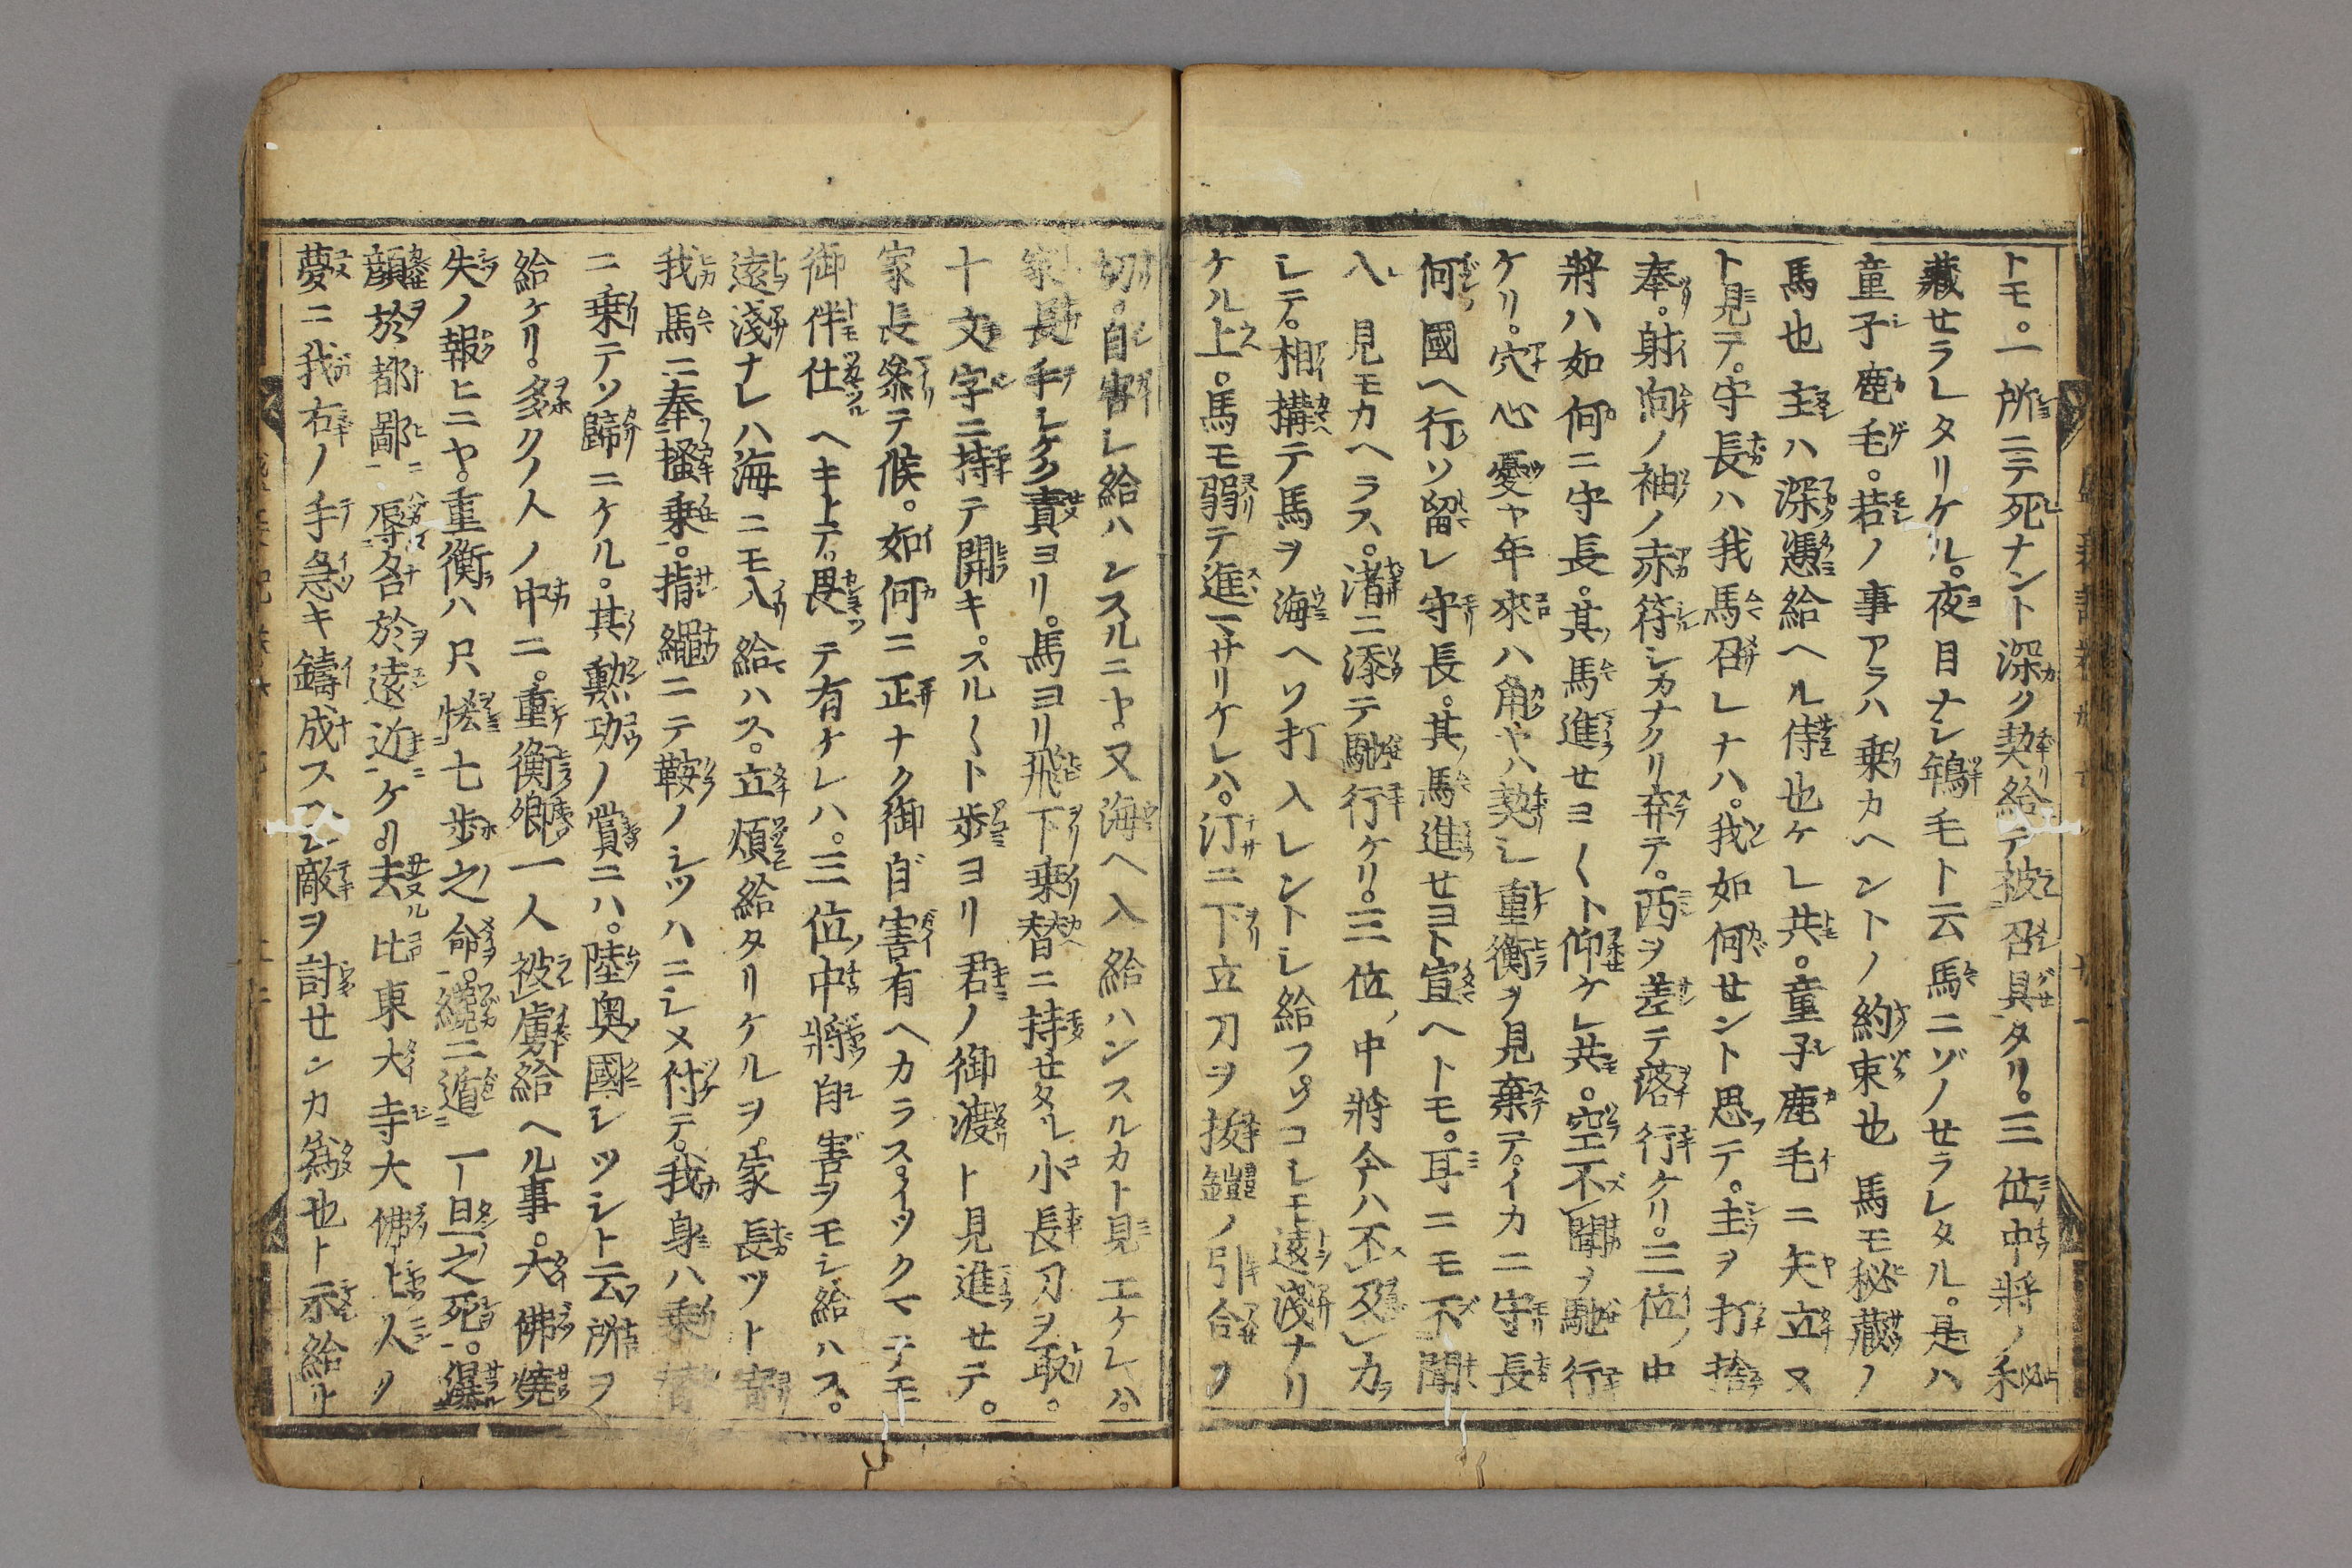 トモ。一所ニテ死ナント深ク契給テ被召具タリ。三位中將ノ秘
藏せラレタリケル。夜目ナシ鴾毛ト云馬ニゾノせラレタル。是ハ
童子鹿毛。若ノ事アラハ乗カヘントノ約束也馬モ秘藏ノ
馬也主ハ深憑給ヘル侍也ケレ共。童子鹿毛ニ矢立ヌ
ト見テ。守長ハ我馬召レナハ。我如何せント思テ。主ヲ打捨
奉。射向ノ袖ノ赤符シカナクリ弃テ。西ヲ差テ落行ケリ。三位ノ中
將ハ如何ニ守長。其馬進せヨ〱ト仰ケレ共。空不聞ヲ馳行
ケリ。穴心憂ヤ年來ハ角ヤハ契シ重衡ヲ見棄テ。イカニ守長
何國ヘ行ソ留レ守長。其馬進せヨト宣ヘトモ。耳ニモ不聞
入見モカヘラス。渚ニ添テ馳行ケリ。三位中將今ハ不及力
シテ。相構テ馬ヲ海ヘソ打入レントシ給フ。ソコシモ遠淺ナリ
ケル上。馬モ弱テ進マサリケレハ。汀ニ下立刀ヲ抜鎧ノ引合ヲ
切。自害シ給ハンスルニヤ。又海ヘ入給ハンスルカト見エケレハ。
家長手シケク責ヨリ。馬ヨリ飛下乗替ニ持せタレ小長刀ヲ取。
十文字ニ持テ開キ。スル〱ト歩ヨリ君ノ御渡ト見進せテ。
家長參テ候。如何ニ正ナク御自害有ヘカラス。イツクマテモ
御伴仕ヘキトテ。畏テ有ケレハ。三位中將自害ヲモシ給ハス。
遠淺ナレハ海ニモ入給ハス。立煩給タリケルヲ。家長ツト寄
我馬ニ奉搔乗。指繩ニテ鞍ノシツハニシメ付テ。我身ハ乗替
ニ乗テソ歸ニケル。其勲功ノ賞ニハ。陸奥國シツシト云所ヲ
給ケリ。多クノ人ノ中ニ。重衡卿一人被虜給ヘル事。大佛燒
失ノ報ヒニヤ。重衡ハ只惜七歩之命。纔ニ遁一旦之死。曝
顔於都鄙辱名於遠近ケリ夫比東大寺大佛上人ノ
夢ニ我右ノ手急キ鑄成スヘシ敵ヲ討せンカ為也ト示給リ